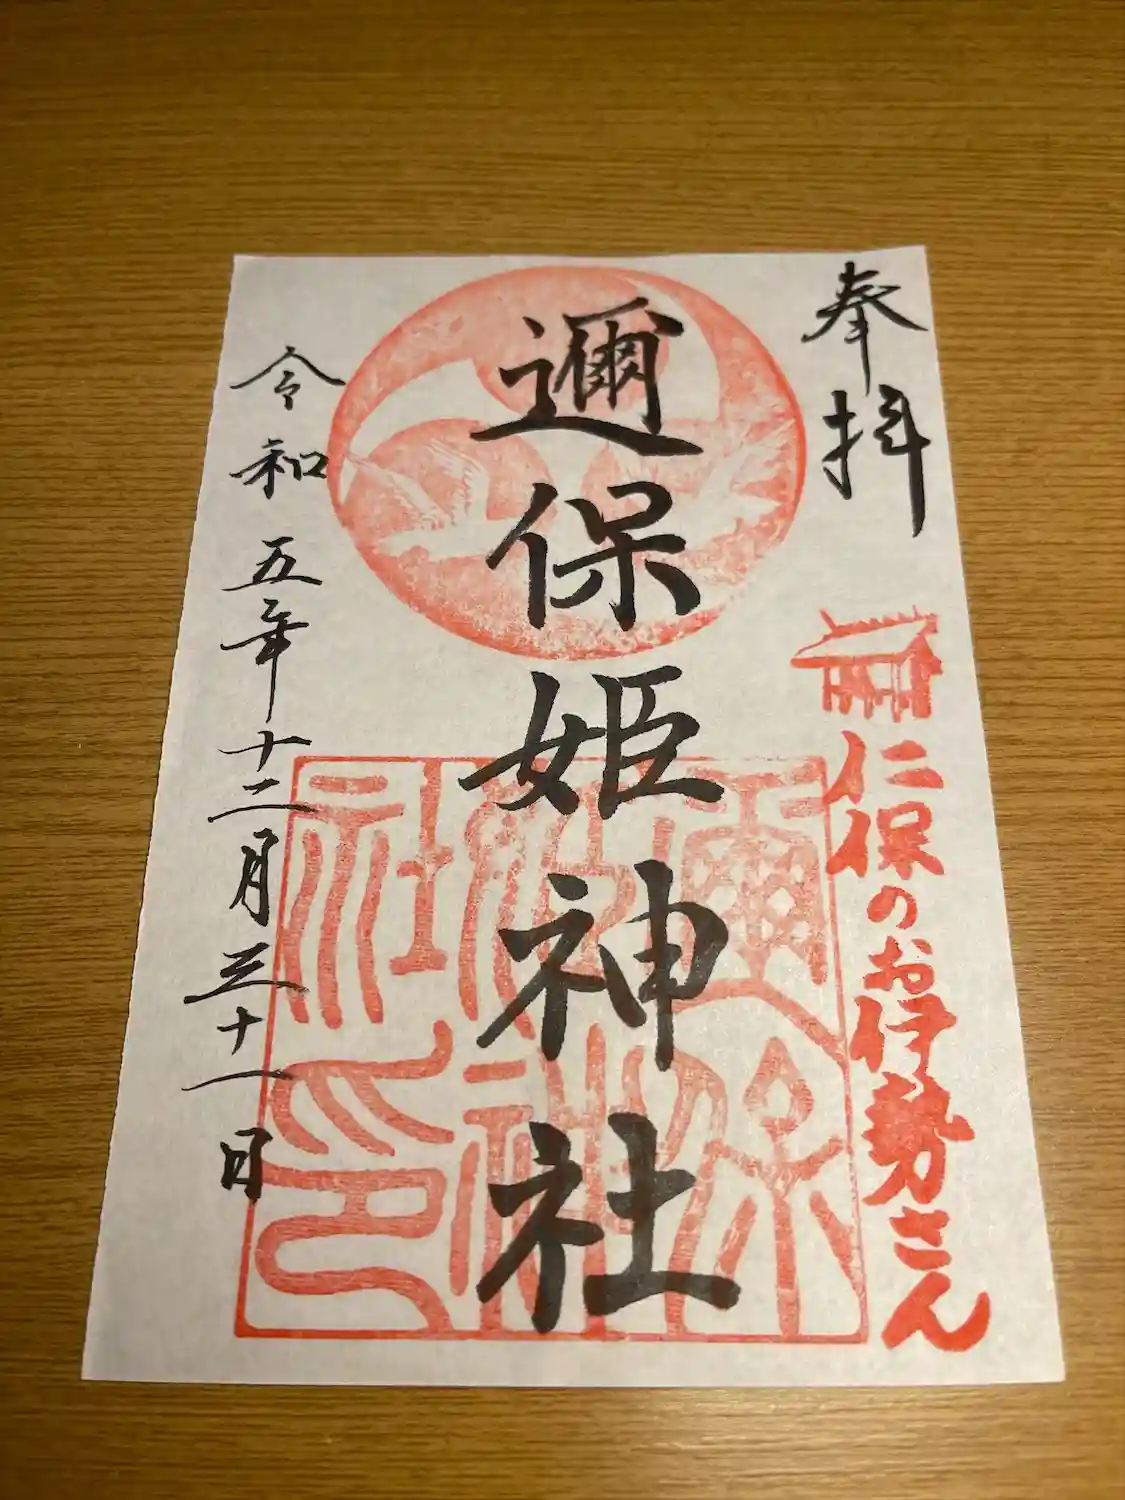 奉拝
仁保のお伊勢さん
邇保姫神社
邇保姫神社印
令和五年十二月三十一日